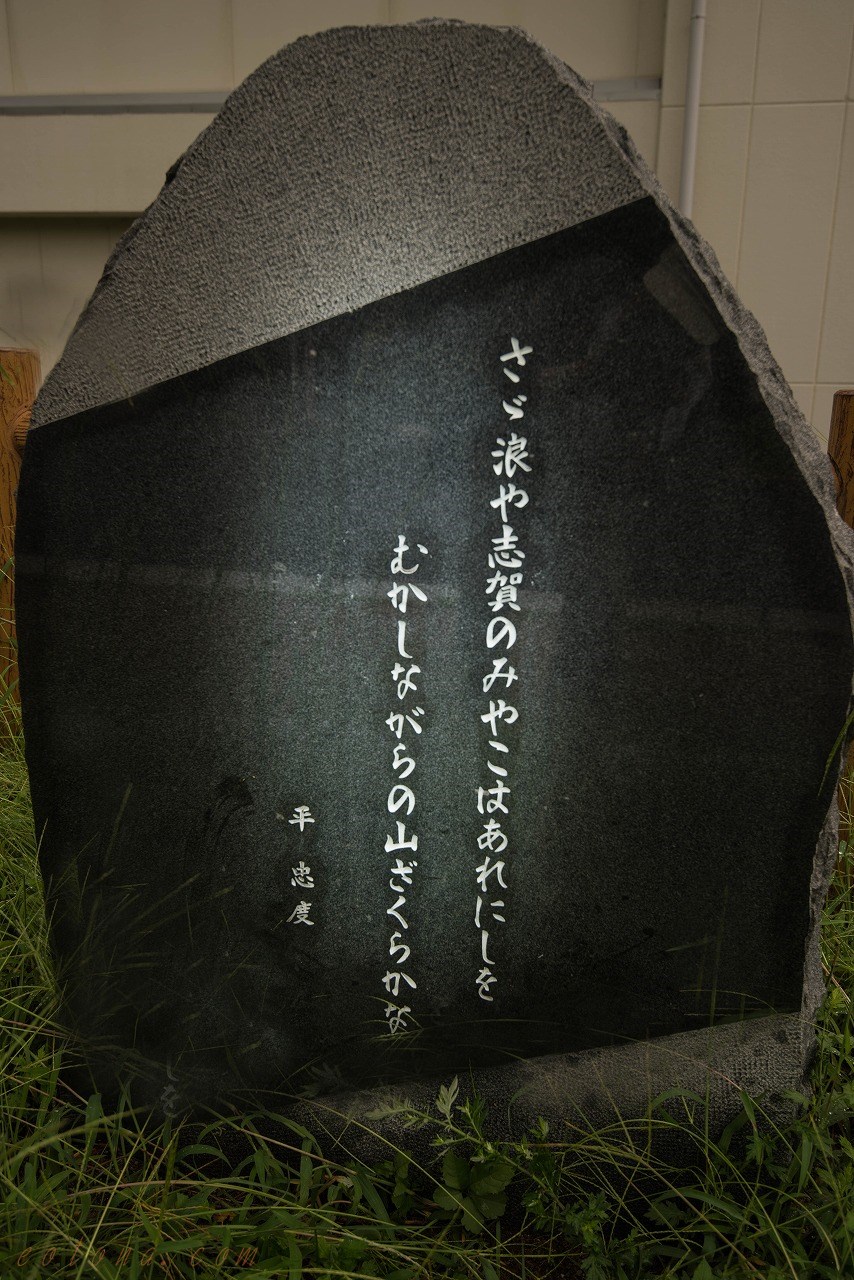 さゞ浪や志賀のみやこはあれにしを
むかしながらの山ざくらかな
平 忠度